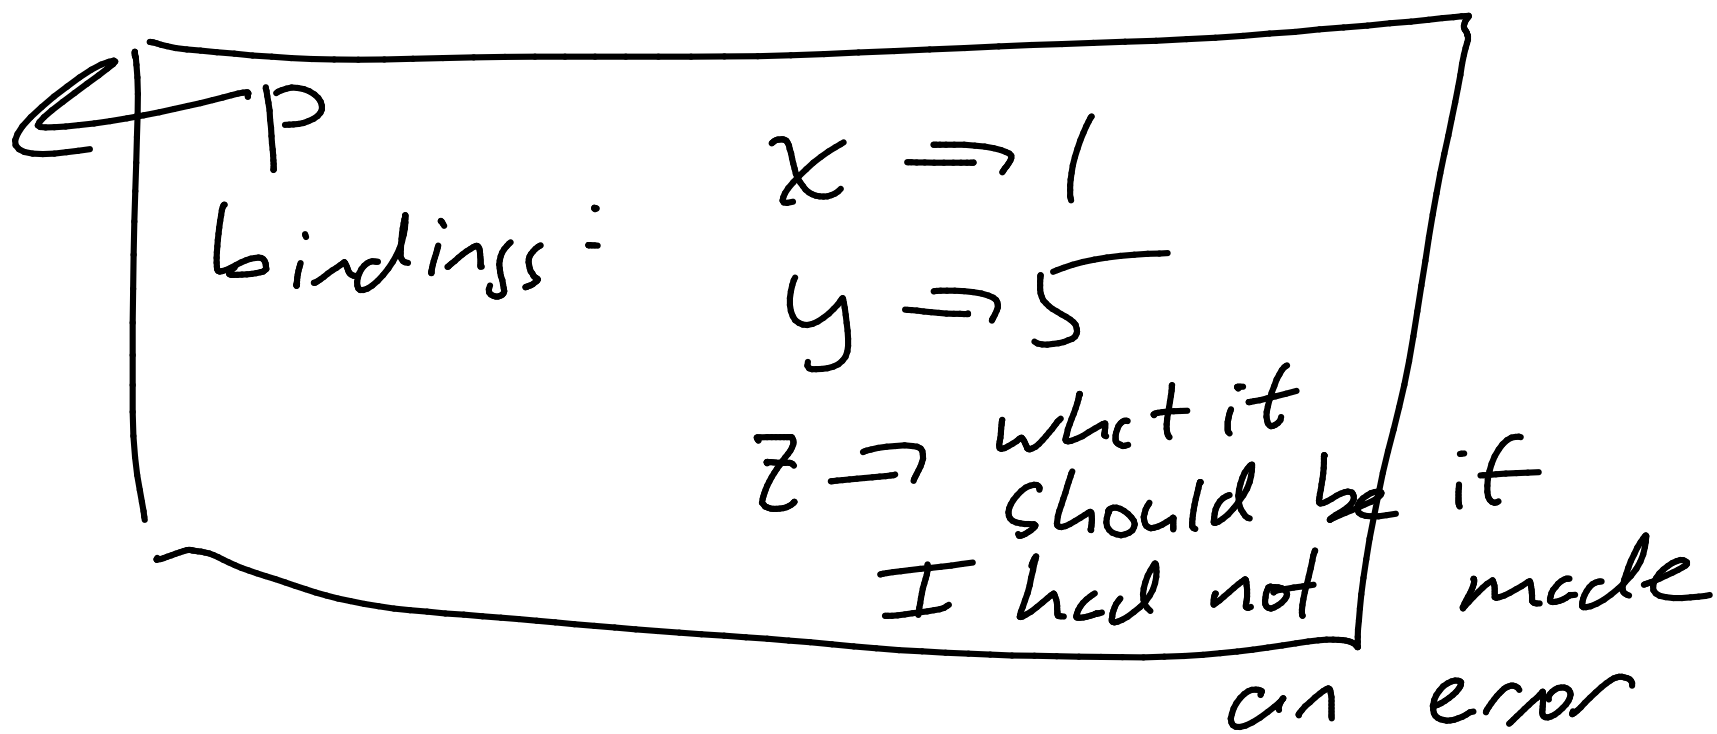 P
bindings:
x => 1
y => 5
z => what it
should be if
I had not made
an error